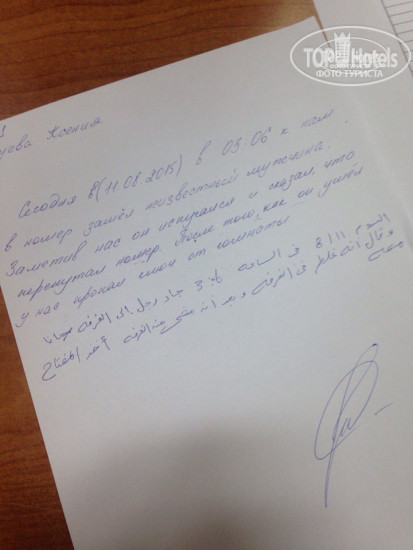 TOP Hotels
ФОТО ТУРИСТА
уева Ксения
Сегодня в (11.08.2015) в 03:06 к нам
в номер зашёл неизвестный мужчина.
Заметив нас он испугался и сказал, что
перепутал номер. После того, как он ушёл
у нас пропал ключ от комнаты
اليوم 11/8 في الساعه 3:06 جاء رجل الى الغرفه
وقال أنه غلط في الغرفه و بعد أنه مشى من الغرفه أخذ المفتاح
معه